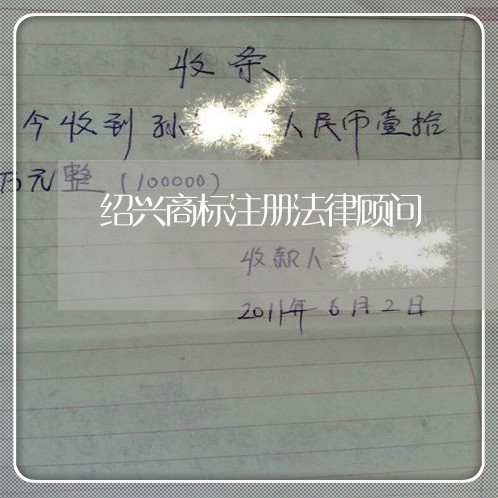 收条
今收到孙 人民币壹拾
万元整（100000）
绍兴商标注册法律顾问
收款人
2011年6月2日